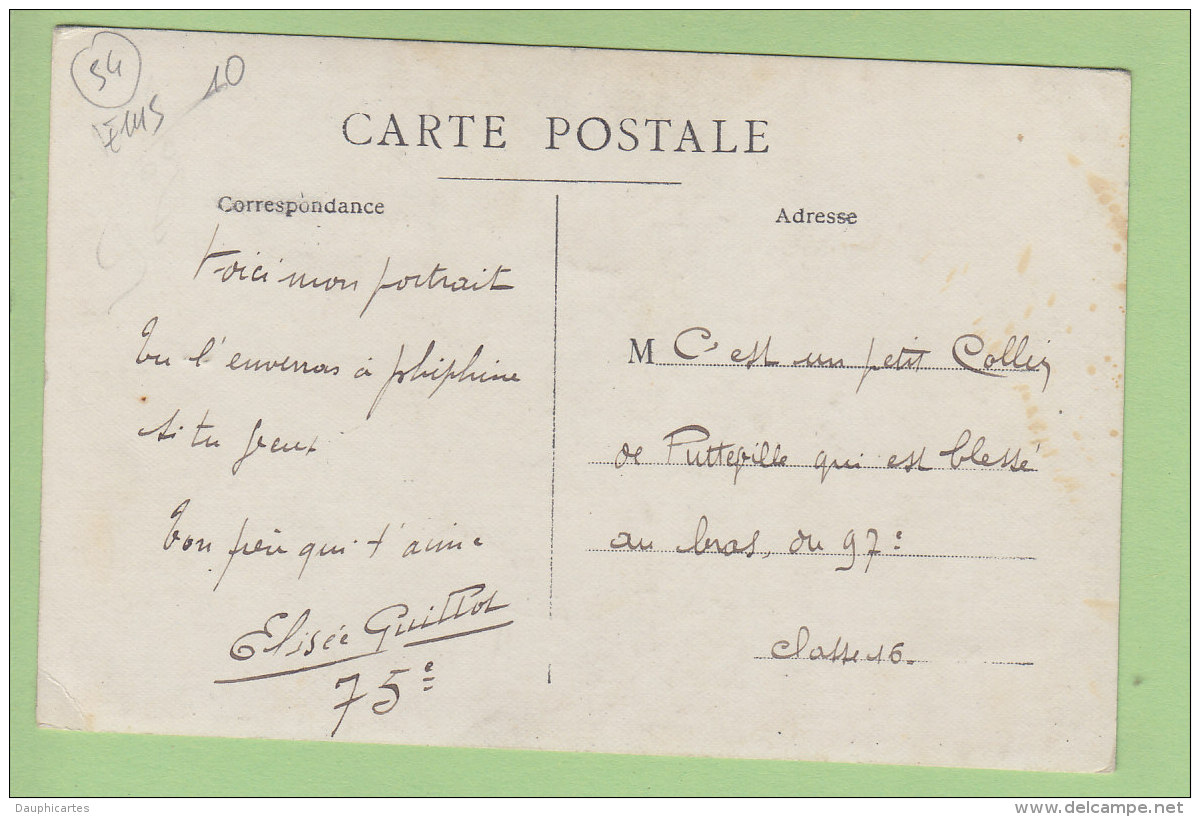 54
10
CARTE POSTALE
Correspondance
Adresse
Voici mon portrait
Tu l'enverras à phiphine
si tu peux
Ton père qui t'aime
Elisée Guillot
75e
M C'est un petit Collin
de Putteville qui est blessé
au bras, du 97e
classe 16.
Dauphicartes
delcampe.net